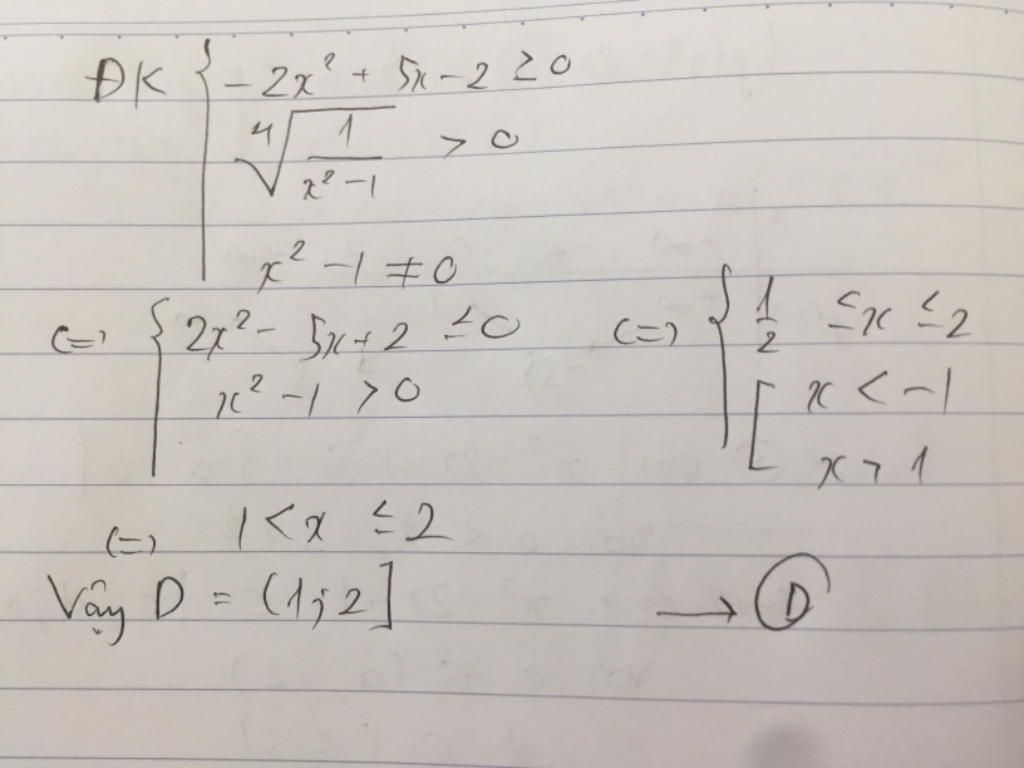 ĐK { -2x² + 5x - 2 ≥ 0
⁴√(1/(x² - 1)) > 0
x² - 1 ≠ 0
(=) { 2x² - 5x + 2 ≤ 0 (=) { 1/2 ≤ x ≤ 2
x² - 1 > 0 [ x < -1
x > 1
(=) 1 < x ≤ 2
Vậy D = (1; 2] → D